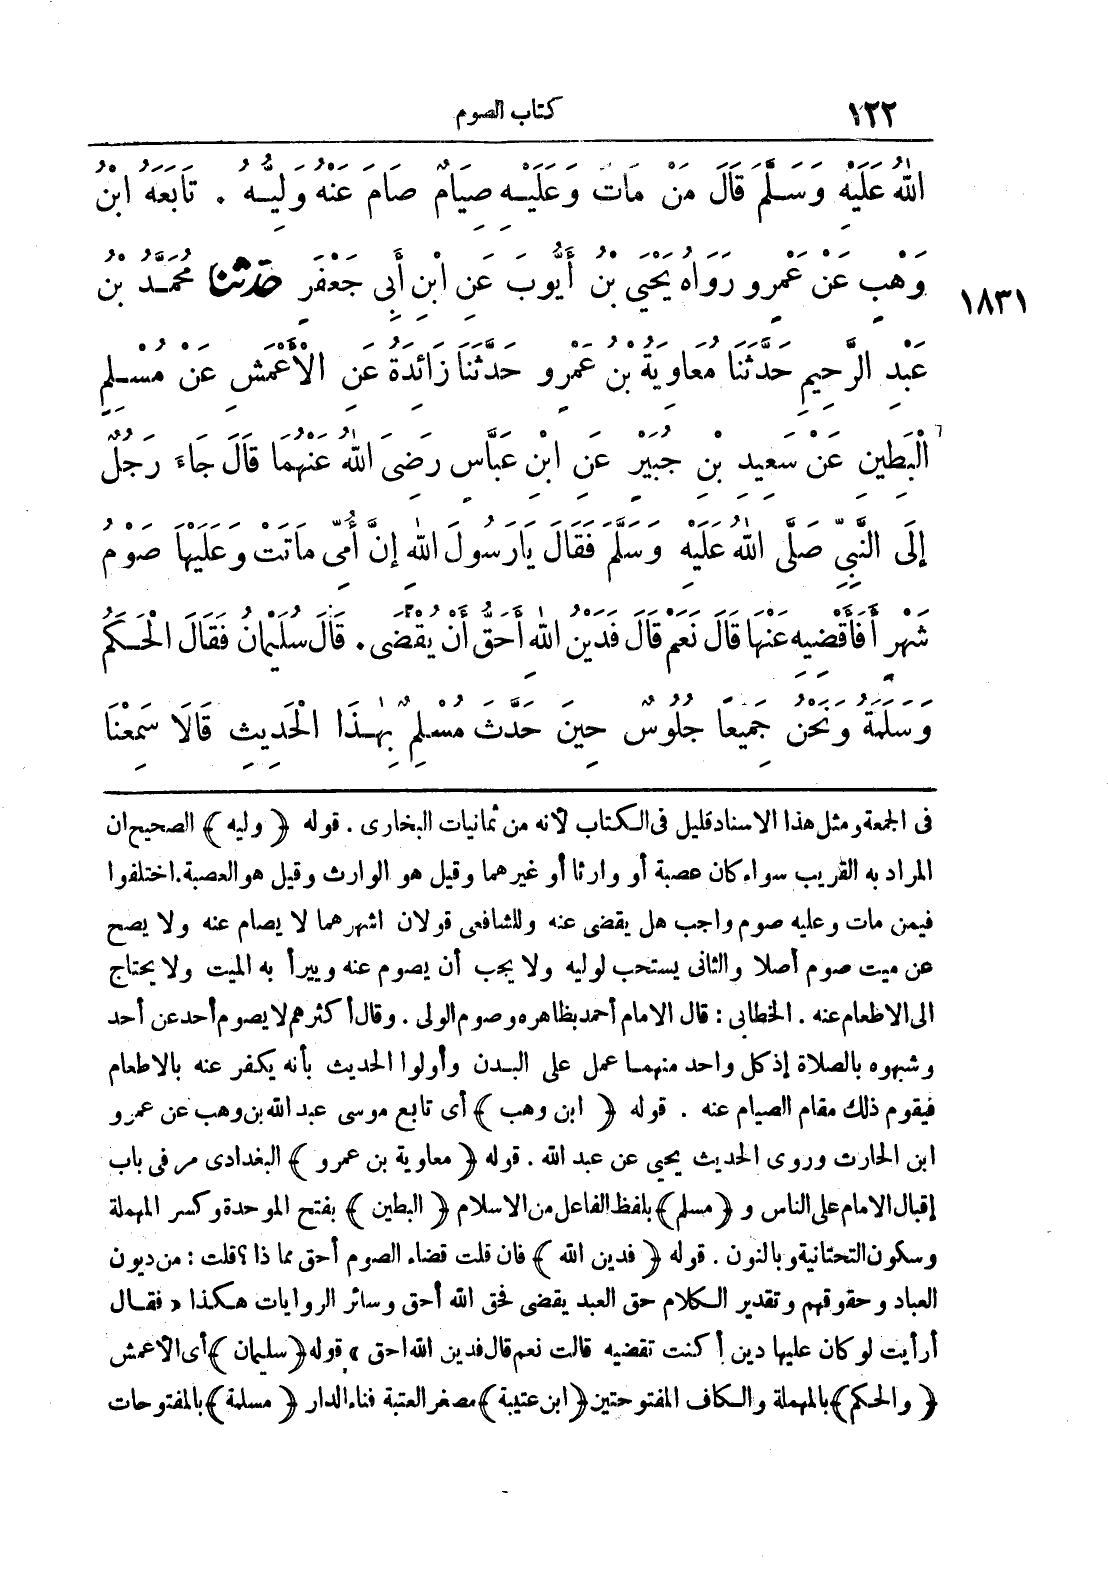 ١٢٢ كتاب الصوم
اللهُ عَلَيْهِ وَسَلَّمَ قَالَ مَنْ مَاتَ وَعَلَيْهِ صِيَامٌ صَامَ عَنْهُ وَلِيُّهُ . تَابَعَهُ ابْنُ
وَهْبٍ عَنْ عَمْرٍو رَوَاهُ يَحْيَى بْنُ أَيُّوبَ عَنِ ابْنِ أَبِي جَعْفَرٍ حَدَّثَنَا مُحَمَّدُ بْنُ
١٨٣١
عَبْدِ الرَّحِيمِ حَدَّثَنَا مُعَاوِيَةُ بْنُ عَمْرٍو حَدَّثَنَا زَائِدَةُ عَنِ الْأَعْمَشِ عَنْ مُسْلِمٍ
الْبَطِينِ عَنْ سَعِيدِ بْنِ جُبَيْرٍ عَنِ ابْنِ عَبَّاسٍ رَضِىَ اللهُ عَنْهُمَا قَالَ جَاءَ رَجُلٌ
إِلَى النَّبِىِّ صَلَّى اللهُ عَلَيْهِ وَسَلَّمَ فَقَالَ يَارَسُولَ اللهِ إِنَّ أُمِّى مَاتَتْ وَعَلَيْهَا صَوْمُ
شَهْرٍ أَفَأَقْضِيهِ عَنْهَا قَالَ نَعَمْ قَالَ فَدَيْنُ اللهِ أَحَقُّ أَنْ يُقْضَى . قَالَ سُلَيْمَانُ فَقَالَ الْحَكَمُ
وَسَلَمَةُ وَنَحْنُ جَمِيعًا جُلُوسٌ حِينَ حَدَّثَ مُسْلِمٌ بِهَذَا الْحَدِيثِ قَالَا سَمِعْنَا
فى الجمعة ومثل هذا الاسناد قليل فى الكتاب لأنه من ثمانيات البخارى . قوله ﴿ وليه ﴾ الصحيح ان
المراد به القريب سواء كان عصبة أو وارثا أو غيرهما وقيل هو الوارث وقيل هو العصبة . اختلفوا
فيمن مات وعليه صوم واجب هل يقضى عنه وللشافعى قولان اشهرهما لا يصام عنه ولا يصح
عن ميت صوم أصلا والثانى يستحب لوليه ولا يجب أن يصوم عنه ويبرأ به الميت ولا يحتاج
الى الاطعام عنه . الخطابى : قال الامام أحمد بظاهره وصوم الولى . وقال أكثرهم لا يصوم أحد عن أحد
وشبهوه بالصلاة إذ كل واحد منهما عمل على البدن وأولوا الحديث بأنه يكفر عنه بالاطعام
فيقوم ذلك مقام الصيام عنه . قوله ﴿ ابن وهب ﴾ أى تابع موسى عبد الله بن وهب عن عمرو
ابن الحارث وروى الحديث يحيى عن عبد الله . قوله ﴿ معاوية بن عمرو ﴾ البغدادى مر فى باب
إقبال الامام على الناس و ﴿ مسلم ﴾ بلفظ الفاعل من الاسلام ﴿ البطين ﴾ بفتح الموحدة وكسر المهملة
وسكون التحتانية وبالنون . قوله ﴿ فدين الله ﴾ فان قلت قضاء الصوم أحق مما ذا ؟ قلت : من ديون
العباد وحقوقهم وتقدير الكلام حق العبد يقضى فحق الله أحق وسائر الروايات هكذا « فقال
أرأيت لو كان عليها دين أكنت تقضيه قالت نعم قال فدين الله احق » قوله ﴿ سليمان ﴾ أى الأعمش
﴿ والحكم ﴾ بالمهملة والكاف المفتوحتين ﴿ ابن عتيبة ﴾ مصغر العتبة فناء الدار ﴿ مسلمة ﴾ بالمفتوحات